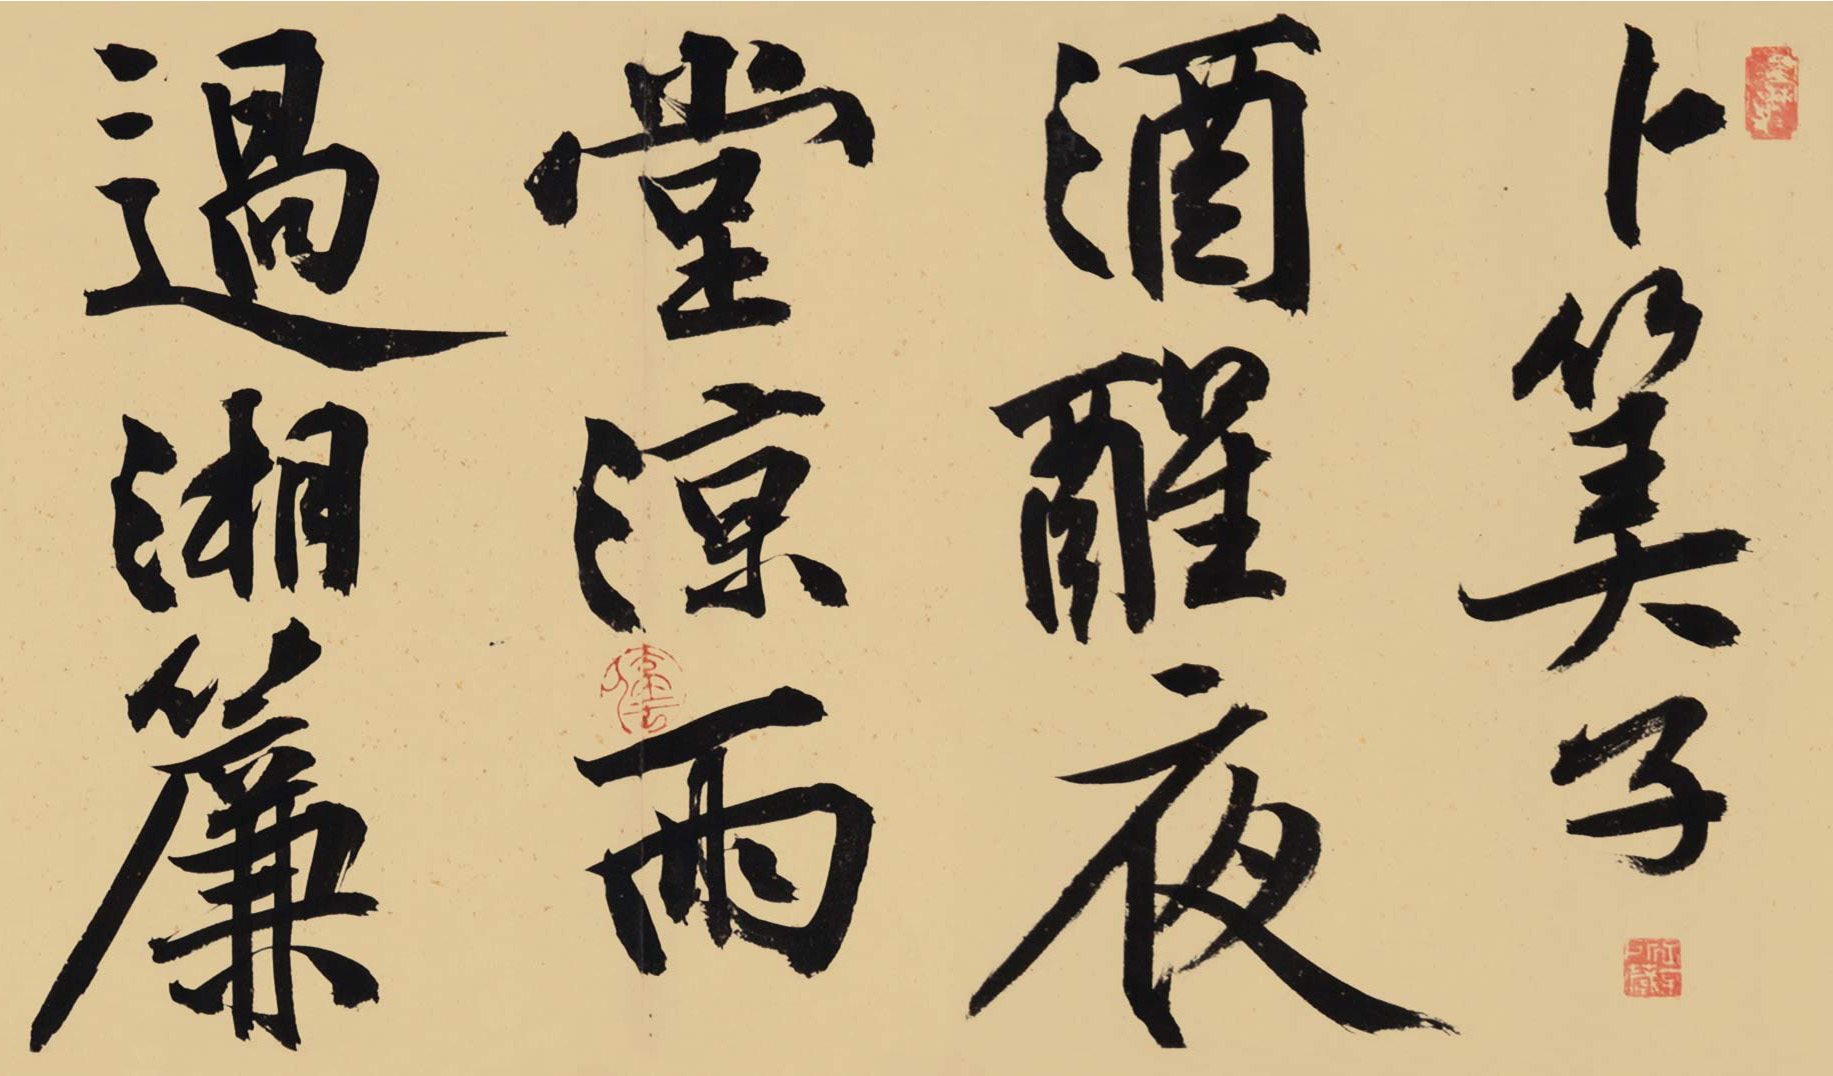 卜算子
酒醒夜
堂涼雨
過湘簾